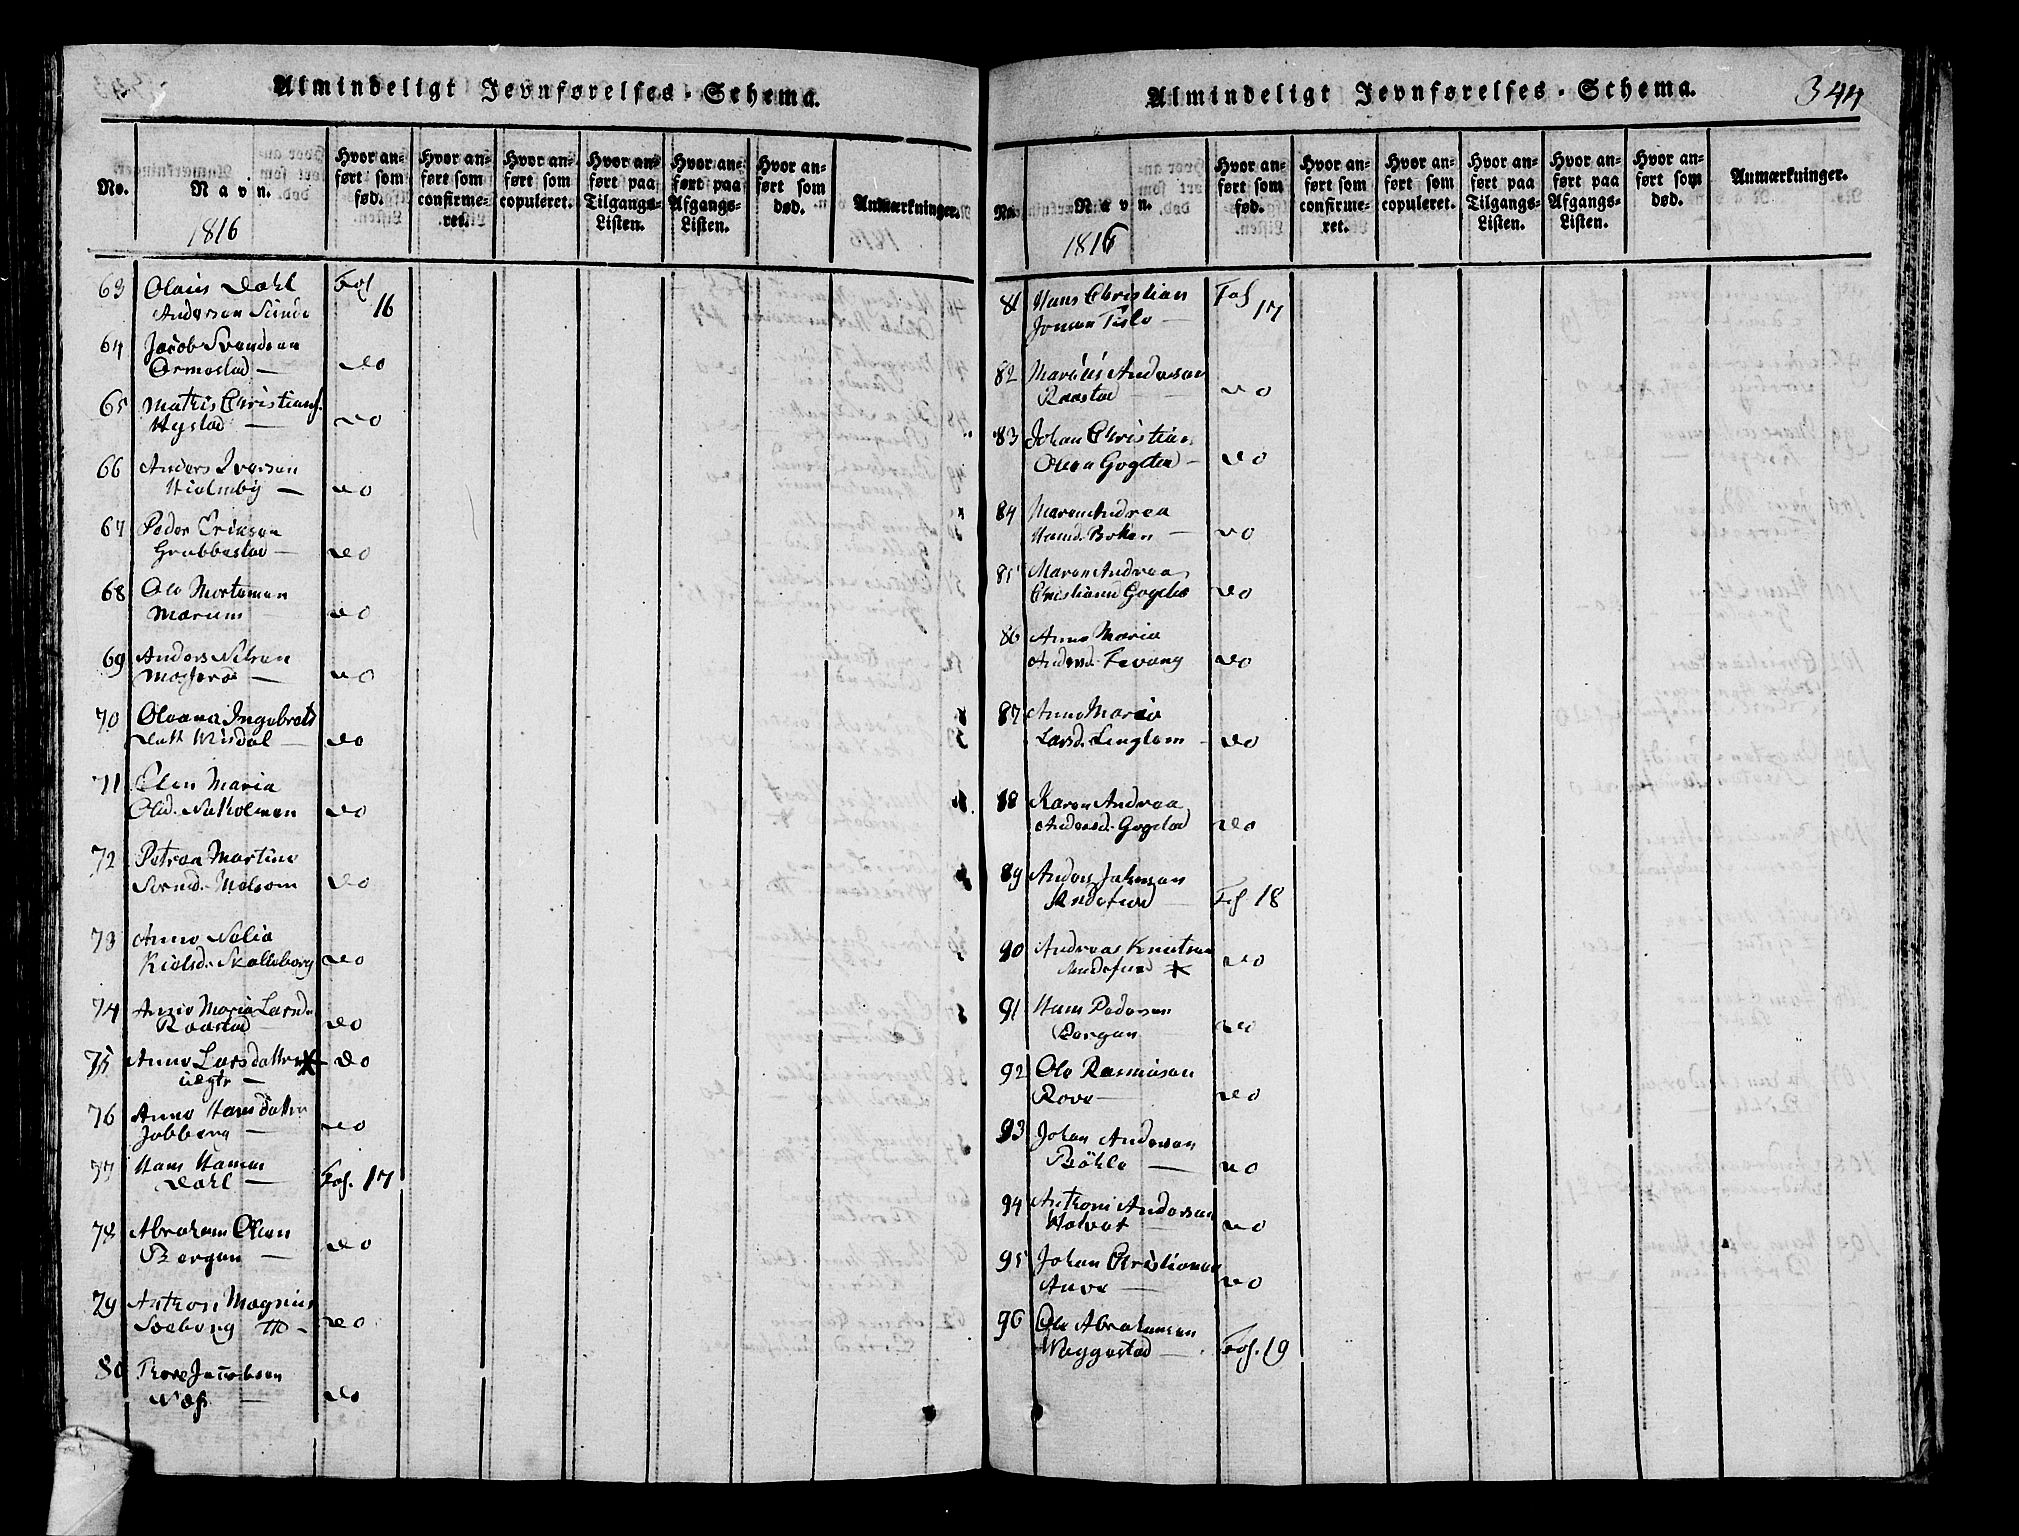 Almindeligt Jevnførelses-Schema.
No.
Navn.
Hvor an-
ført som
fød.
Hvor an-
ført som
confirme-
ret.
Hvor an-
ført som
copuleret.
Hvor an-
ført paa
Tilgangs-
Listen.
Hvor an-
ført paa
Afgangs-
Listen.
Hvor an-
ført som
død.
Anmærkninger.
1816
63 Olaus Dahl Fol
Andersen Sunde 16
64 Jacob Svendsen
Ormestad — do
65 Mathis Christians.
Hystad — do
66 Anders Iversen
Hielmby — do
67 Peder Ericksen
Grubbestad — do
68 Ole Mortensen
Marum do
69 Anders Nilsen
Mosserøe — do
70 Oleana Ingebrets
Datt Misdal — do
71 Elen Maria
Olsd. Natholmen do
72 Petrea Martine
Svend. Melsom do
73 Anne Malia
Nielsd. Skalleberg do
74 Anne Maria Larsd.
Raastad do
75 Anne Larsdatter do
uegte —
76 Anne Hansdatter
Jabberg — do
77 Hans Hansen
Dahl — Fol. 17
78 Abraham Olsen
Bergan — do
79 Anthon Magnus
Soeberg — do
80 Thore Jacobsen
Næss — do
Almindeligt Jevnførelses-Schema.
344
No.
Navn.
Hvor an-
ført som
fød.
Hvor an-
ført som
confirme-
ret.
Hvor an-
ført som
copuleret.
Hvor an-
ført paa
Tilgangs-
Listen.
Hvor an-
ført paa
Afgangs-
Listen.
Hvor an-
ført som
død.
Anmærkninger.
1816
81 Hans Christian Fol
Jonsen — 17
82 Marius Andersen
Raastad do
83 Johan Christian
Olsen Gogstad — do
84 Maren Andrea
Hansd. Bolken — do
85 Maren Andrea
Christiansd Gogstad do
86 Anne Maria
Andersd. Fevang do
87 Anne Maria
Larsd. Lenglem — do
88 Karen Andrea
Andersd. Gogstad do
89 Anders Johnsen
Sandefiord Fol 18
90 Andreas Knutsen
Sandefiord do
91 Hans Pedersen
Bergan — do
92 Ole Rasmusen
Rove — do
93 Johan Andersen
Bøhle — do
94 Anthoni Andersen
do
95 Johan Christiansen
Auve — do
96 Ole Abrahamsen
Weggestad — Fol. 19